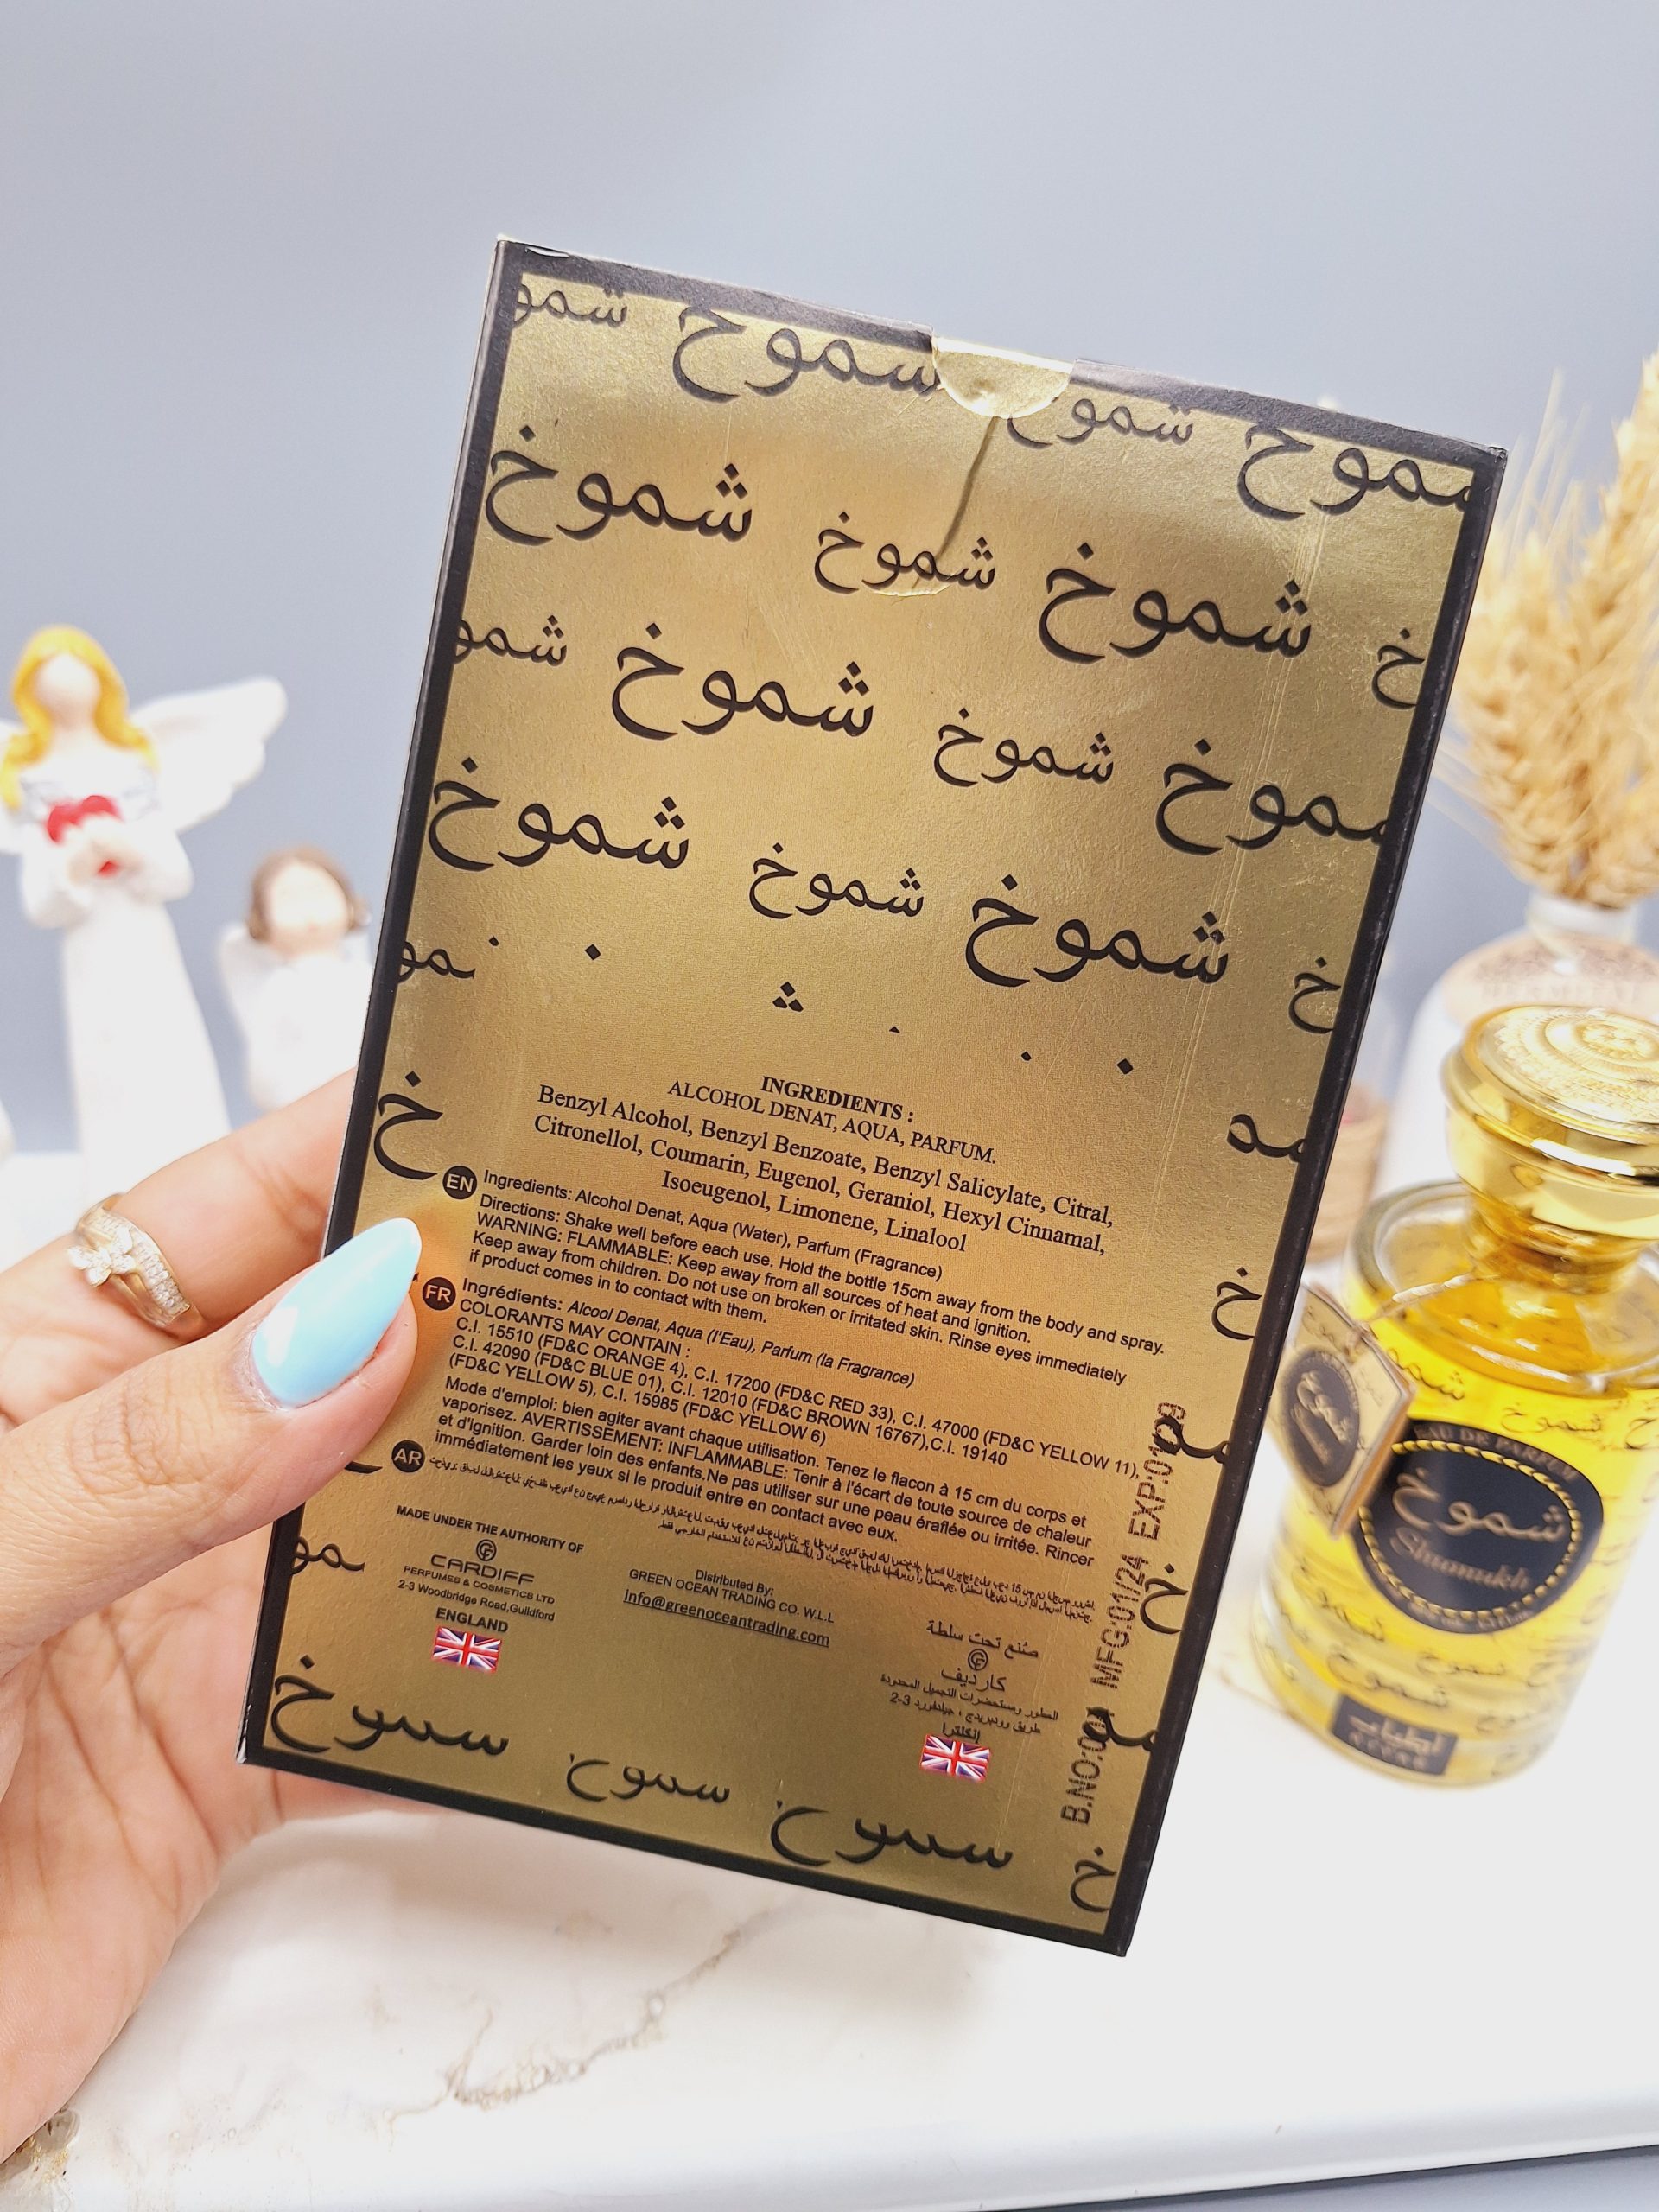 شموخ
شموخ
شموخ
شموخ
شموخ
شموخ
شموخ
شموخ
شموخ
شموخ
INGREDIENTS :
ALCOHOL DENAT, AQUA, PARFUM.
Benzyl Alcohol, Benzyl Benzoate, Benzyl Salicylate, Citral,
Citronellol, Coumarin, Eugenol, Geraniol, Hexyl Cinnamal,
Isoeugenol, Limonene, Linalool
EN Ingredients: Alcohol Denat, Aqua (Water), Parfum (Fragrance)
Directions: Shake well before each use. Hold the bottle 15cm away from the body and spray.
WARNING: FLAMMABLE: Keep away from all sources of heat and ignition.
Keep away from children. Do not use on broken or irritated skin. Rinse eyes immediately
if product comes in to contact with them.
FR Ingrédients: Alcool Denat, Aqua (l'Eau), Parfum (la Fragrance)
COLORANTS MAY CONTAIN :
C.I. 15510 (FD&C ORANGE 4), C.I. 17200 (FD&C RED 33), C.I. 47000 (FD&C YELLOW 11),
C.I. 42090 (FD&C BLUE 01), C.I. 12010 (FD&C BROWN 16767),C.I. 19140
(FD&C YELLOW 5), C.I. 15985 (FD&C YELLOW 6)
Mode d'emploi: bien agiter avant chaque utilisation. Tenez le flacon à 15 cm du corps et
vaporisez. AVERTISSEMENT: INFLAMMABLE: Tenir à l'écart de toute source de chaleur
et d'ignition. Garder loin des enfants.Ne pas utiliser sur une peau éraflée ou irritée. Rincer
immédiatement les yeux si le produit entre en contact avec eux.
AR
MADE UNDER THE AUTHORITY OF
CARDIFF
PERFUMES & COSMETICS LTD
2-3 Woodbridge Road,Guildford
ENGLAND
Distributed By:
GREEN OCEAN TRADING CO. W.L.L
info@greenoceantrading.com
صُنع تحت سلطة
كارديف
العطور ومستحضرات التجميل المحدودة
2-3 طريق وودبريدج ، جيلدفورد
إنكلترا
MFG:01/24 EXP:01/29
EAU DE PARFUM
شموخ
Shumukh